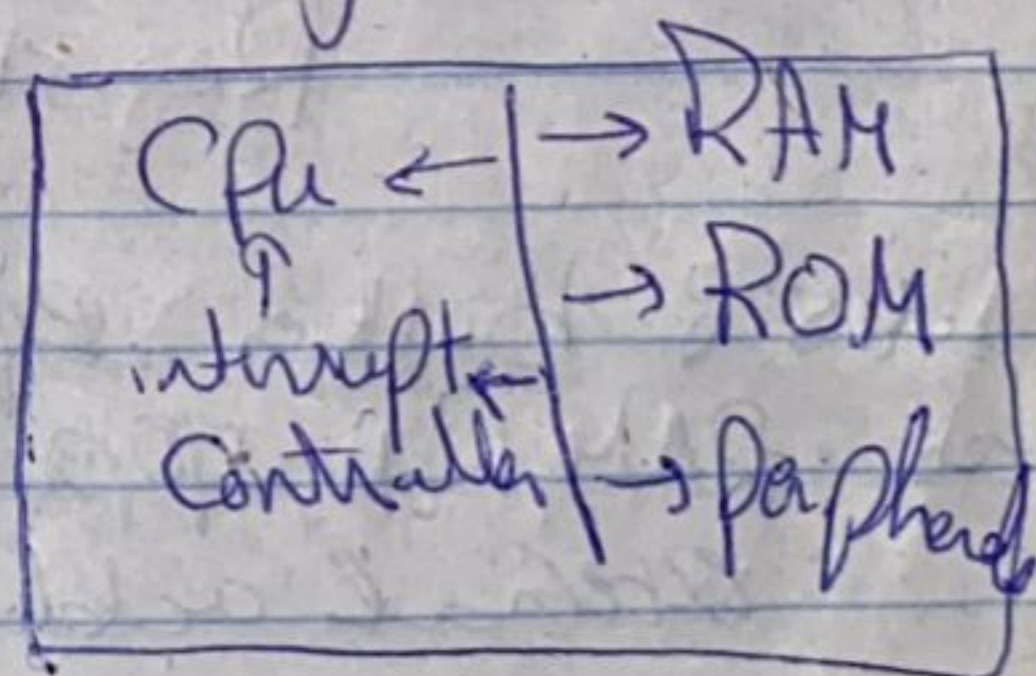 CPU ← → RAM
↑ → ROM
interrupt ←
Controller → Peripheral